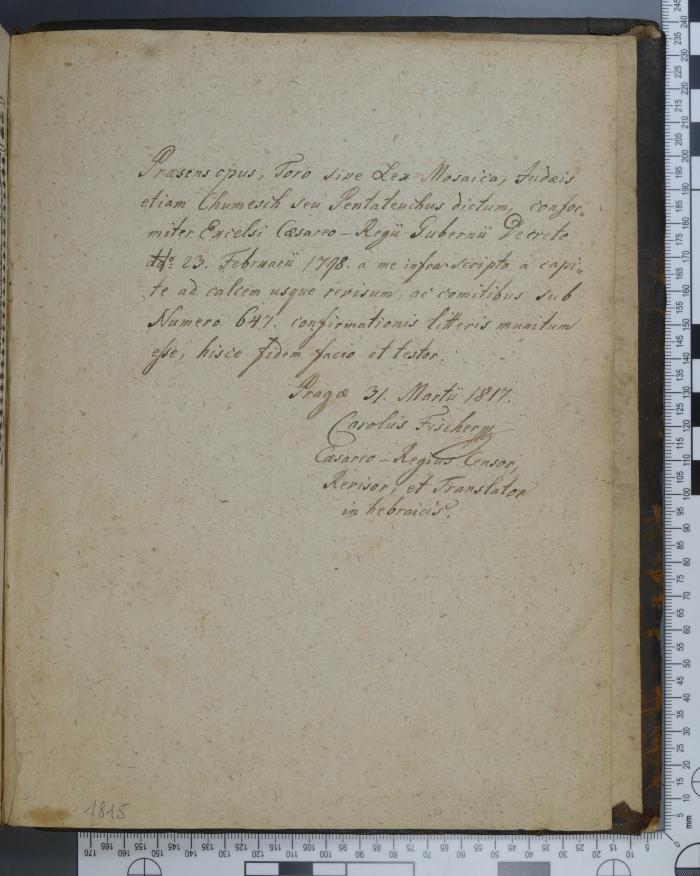 Præsens opus, Toro sive Lex Mosaica, Judæis
etiam Chumesch seu Pentateuchus dictum, confor-
miter Excelsi Cæsareo-Regii Gubernii Decreto
ddo: 23. Februarii 1798. a me infra scripto a capi-
te ad calcem usque revisum, ac comitibus sub
Numero 647. confirmationis litteris munitum
esse, hisce fidem facio et testor.
Pragæ 31. Martii 1817.
Carolus Fischer
Cæsareo-Regius Censor,
Revisor, et Translator
in hebraicis.
1815